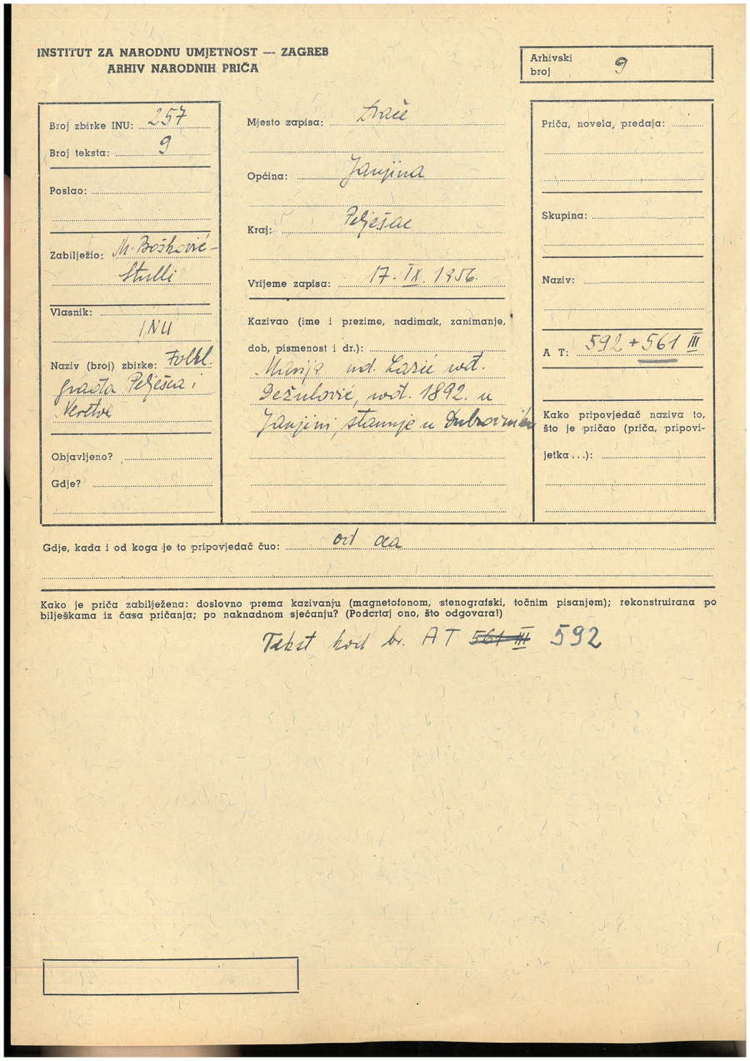 INSTITUT ZA NARODNU UMJETNOST — ZAGREB
ARHIV NARODNIH PRIČA
Arhivski
broj 9
Broj zbirke INU: 257
Broj teksta: 9
Poslao:
Zabilježio: M. Bošković-
Stulli
Vlasnik:
INU
Naziv (broj) zbirke: Folkl.
građa Pelješca i
Neretve
Objavljeno?
Gdje?
Mjesto zapisa:
Općina: Janjina
Kraj: Pelješac
Vrijeme zapisa: 17. IX. 1956.
Kazivao (ime i prezime, nadimak, zanimanje,
dob, pismenost i dr.):
Marija ud. Lazić rođ.
Dežulović, rođ. 1892. u
Janjini, stanuje u Dubrovniku
Priča, novela, predaja:
Skupina:
Naziv:
A T: 592 + 561 III
Kako pripovjedač naziva to,
što je pričao (priča, pripovi-
jetka...):
Gdje, kada i od koga je to pripovjedač čuo: od oca
Kako je priča zabilježena: doslovno prema kazivanju (magnetofonom, stenografski, točnim pisanjem); rekonstruirana po
bilješkama iz časa pričanja; po naknadnom sjećanju? (Podcrtaj ono, što odgovara!)
Tekst kod br. AT 561 III 592